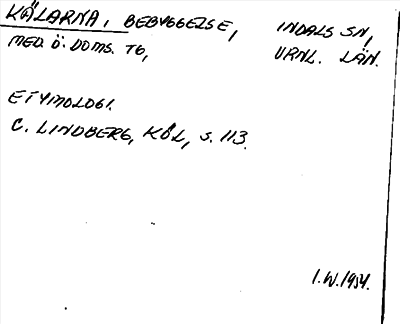 KÄLARNA, BEBYGGELSE, INDALS SN,
MED. Ö. DOMS. TG, VRNL. LÄN.
ETYMOLOGI.
C. LINDBERG, KÖL, S. 113.
I.W. 1954.